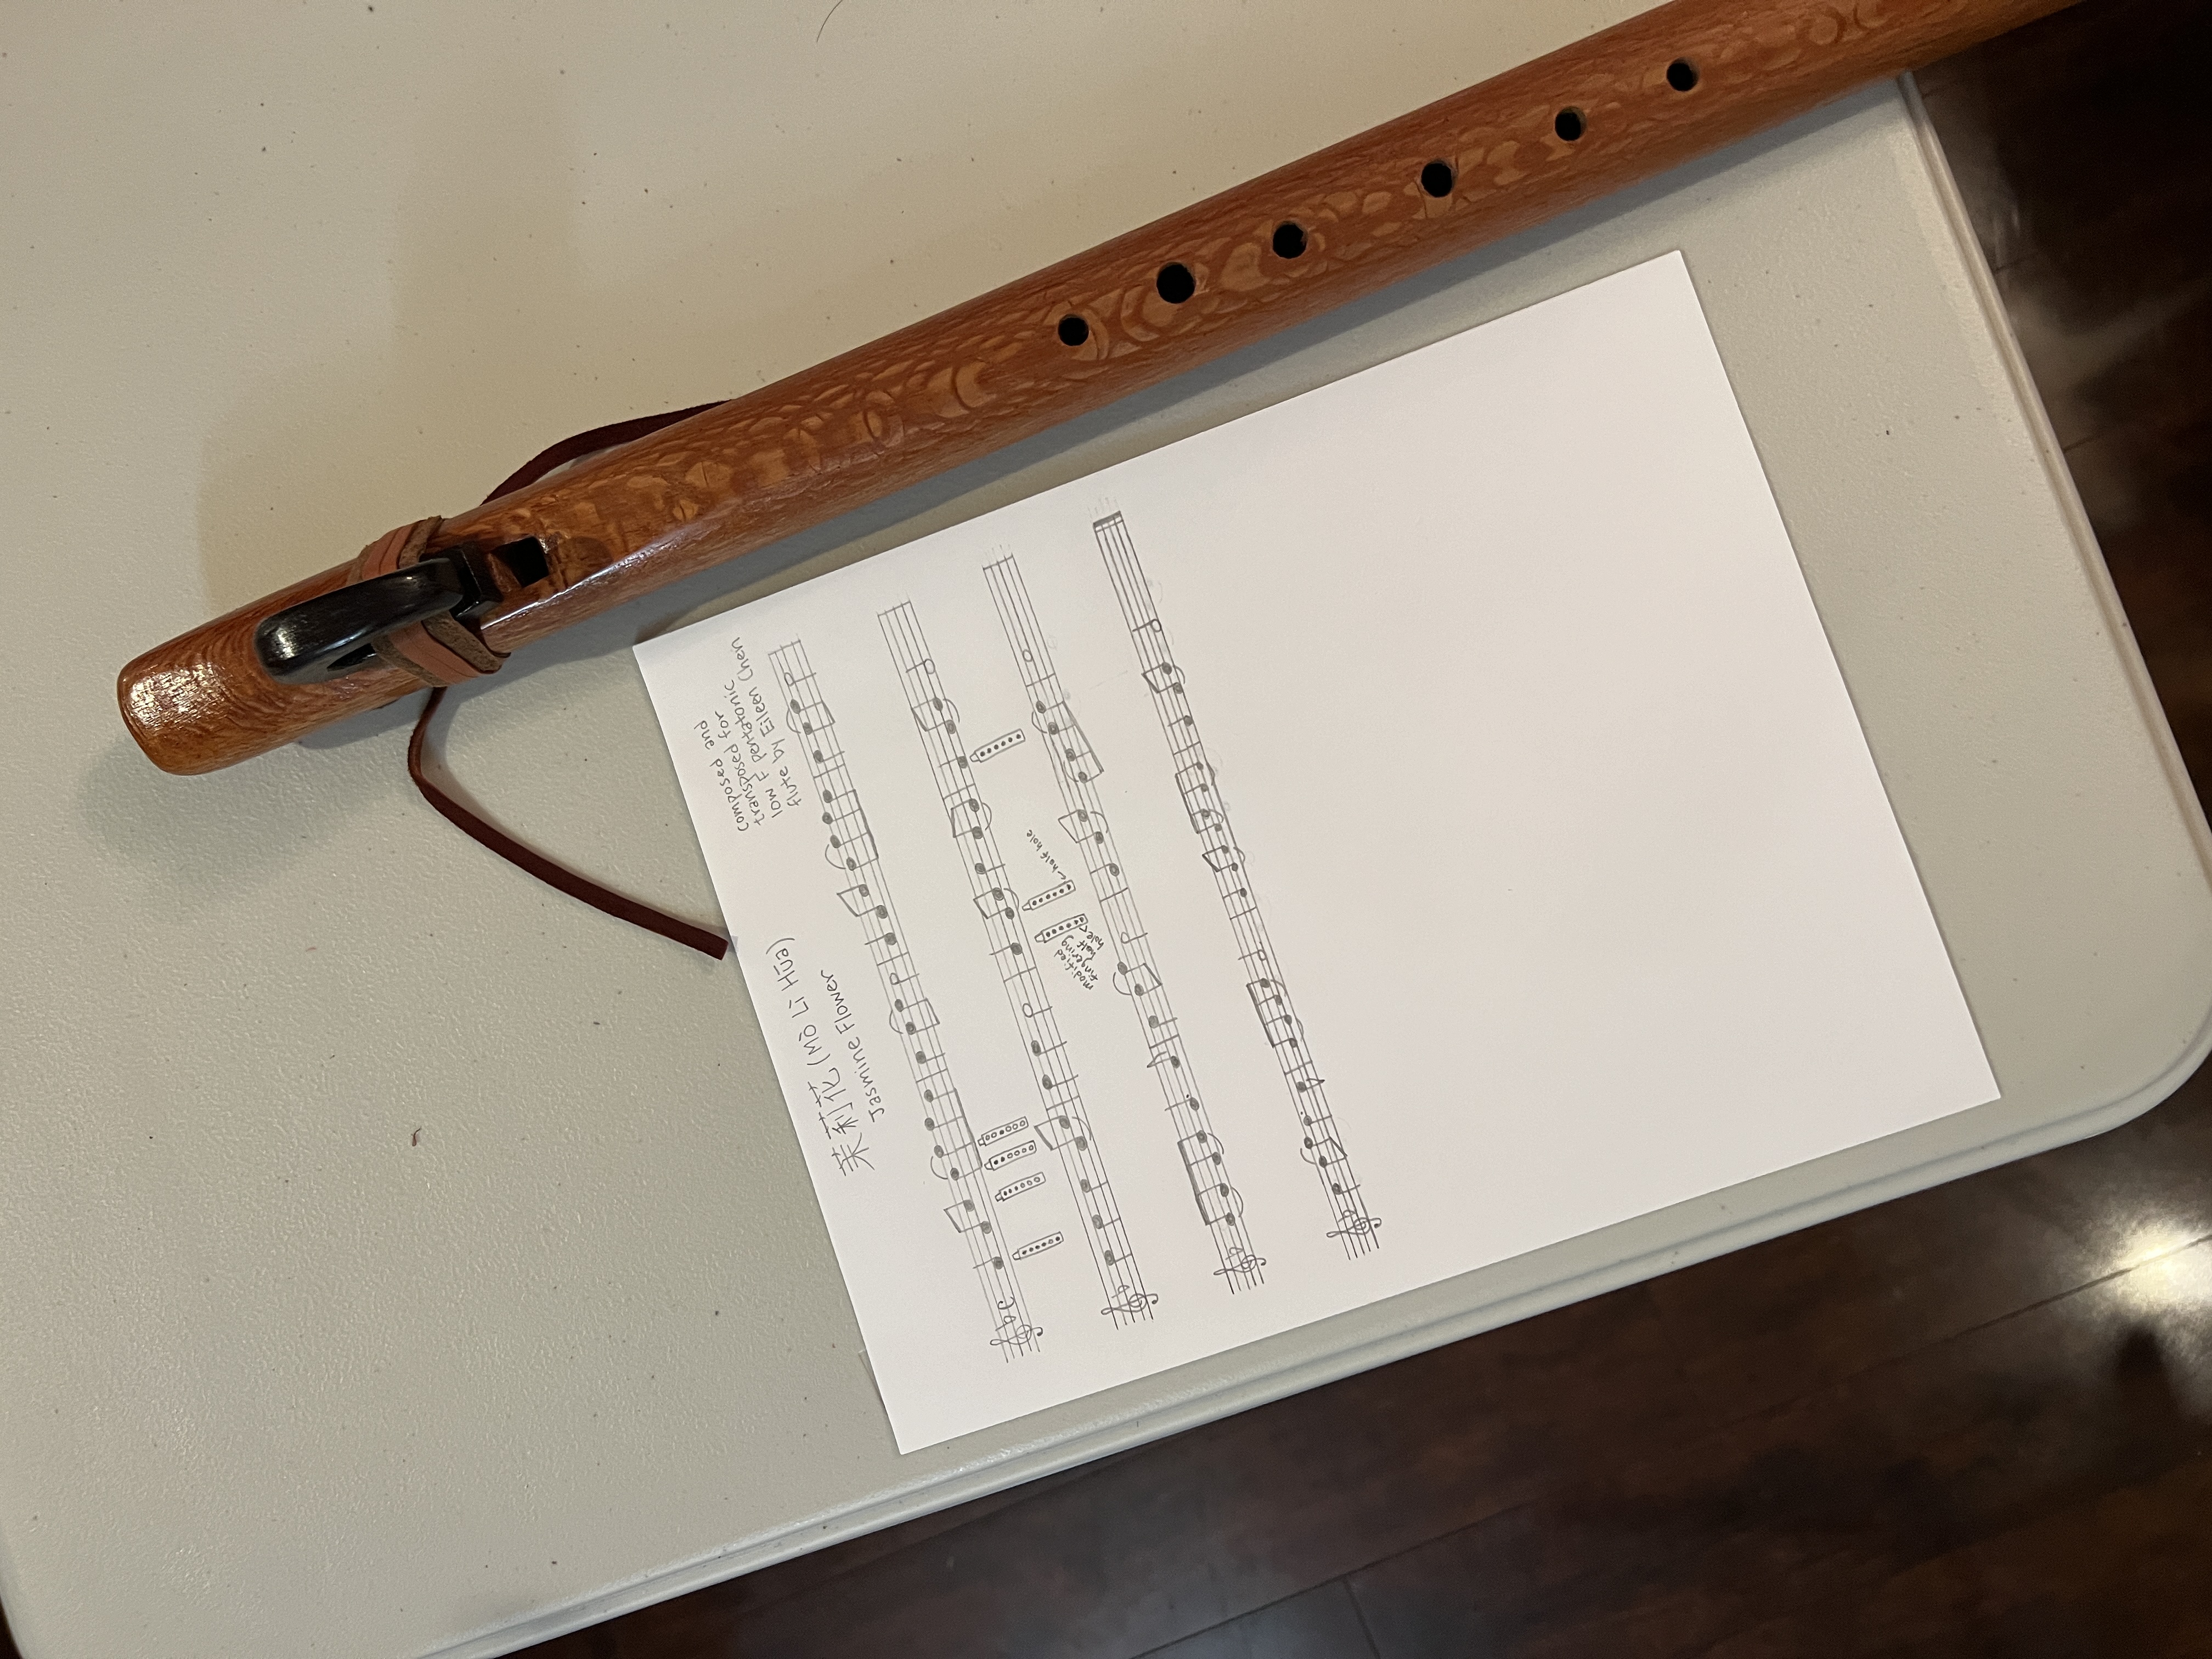 茉莉花 (Mò Lì Hūa)
Jasmine Flower
composed and
transposed for
low F pentatonic
flute by Eileen Chen
modified
fingering
half
hole
half hole